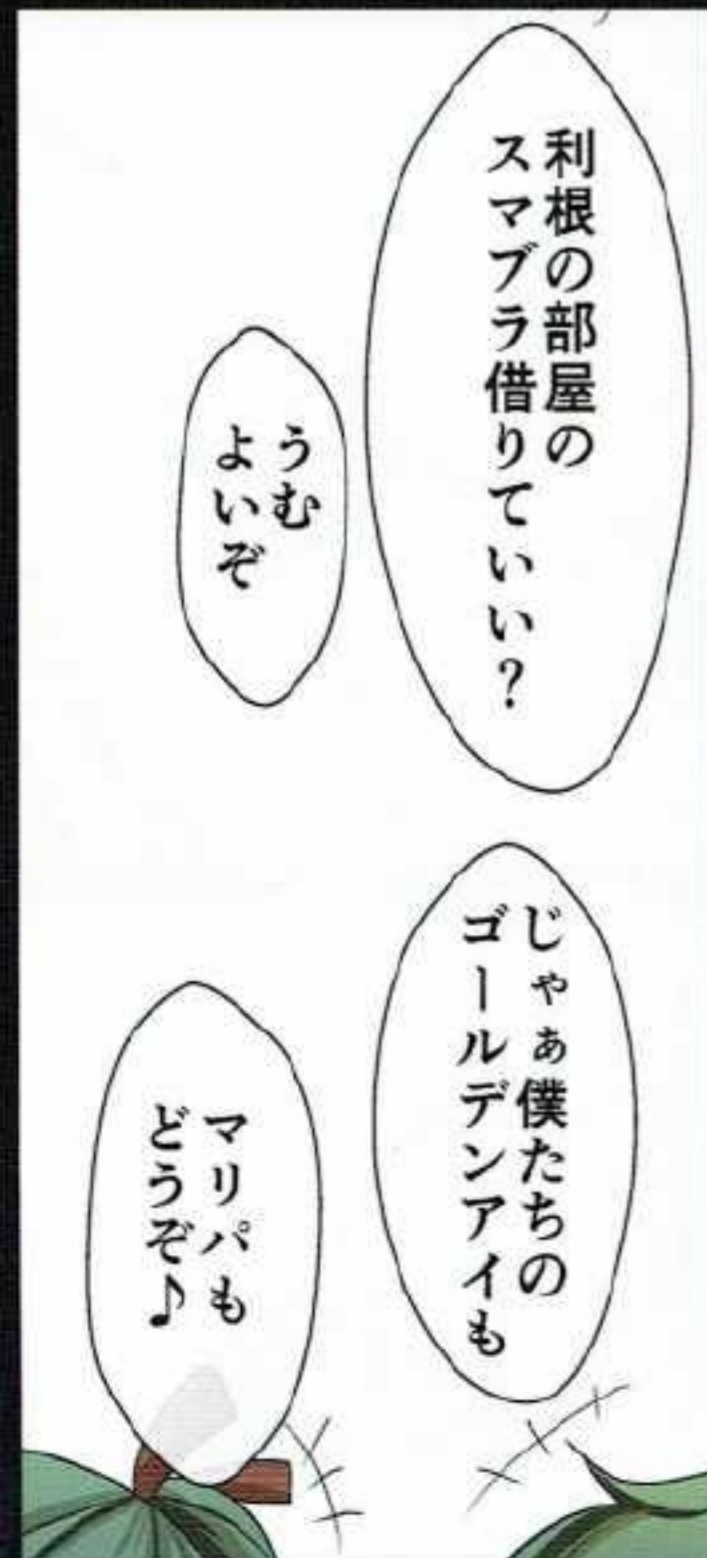 利根の部屋の
スマブラ借りていい?
うむ
よいぞ
じゃぁ僕たちの
ゴールデンアイも
マリパも
どうぞ♪